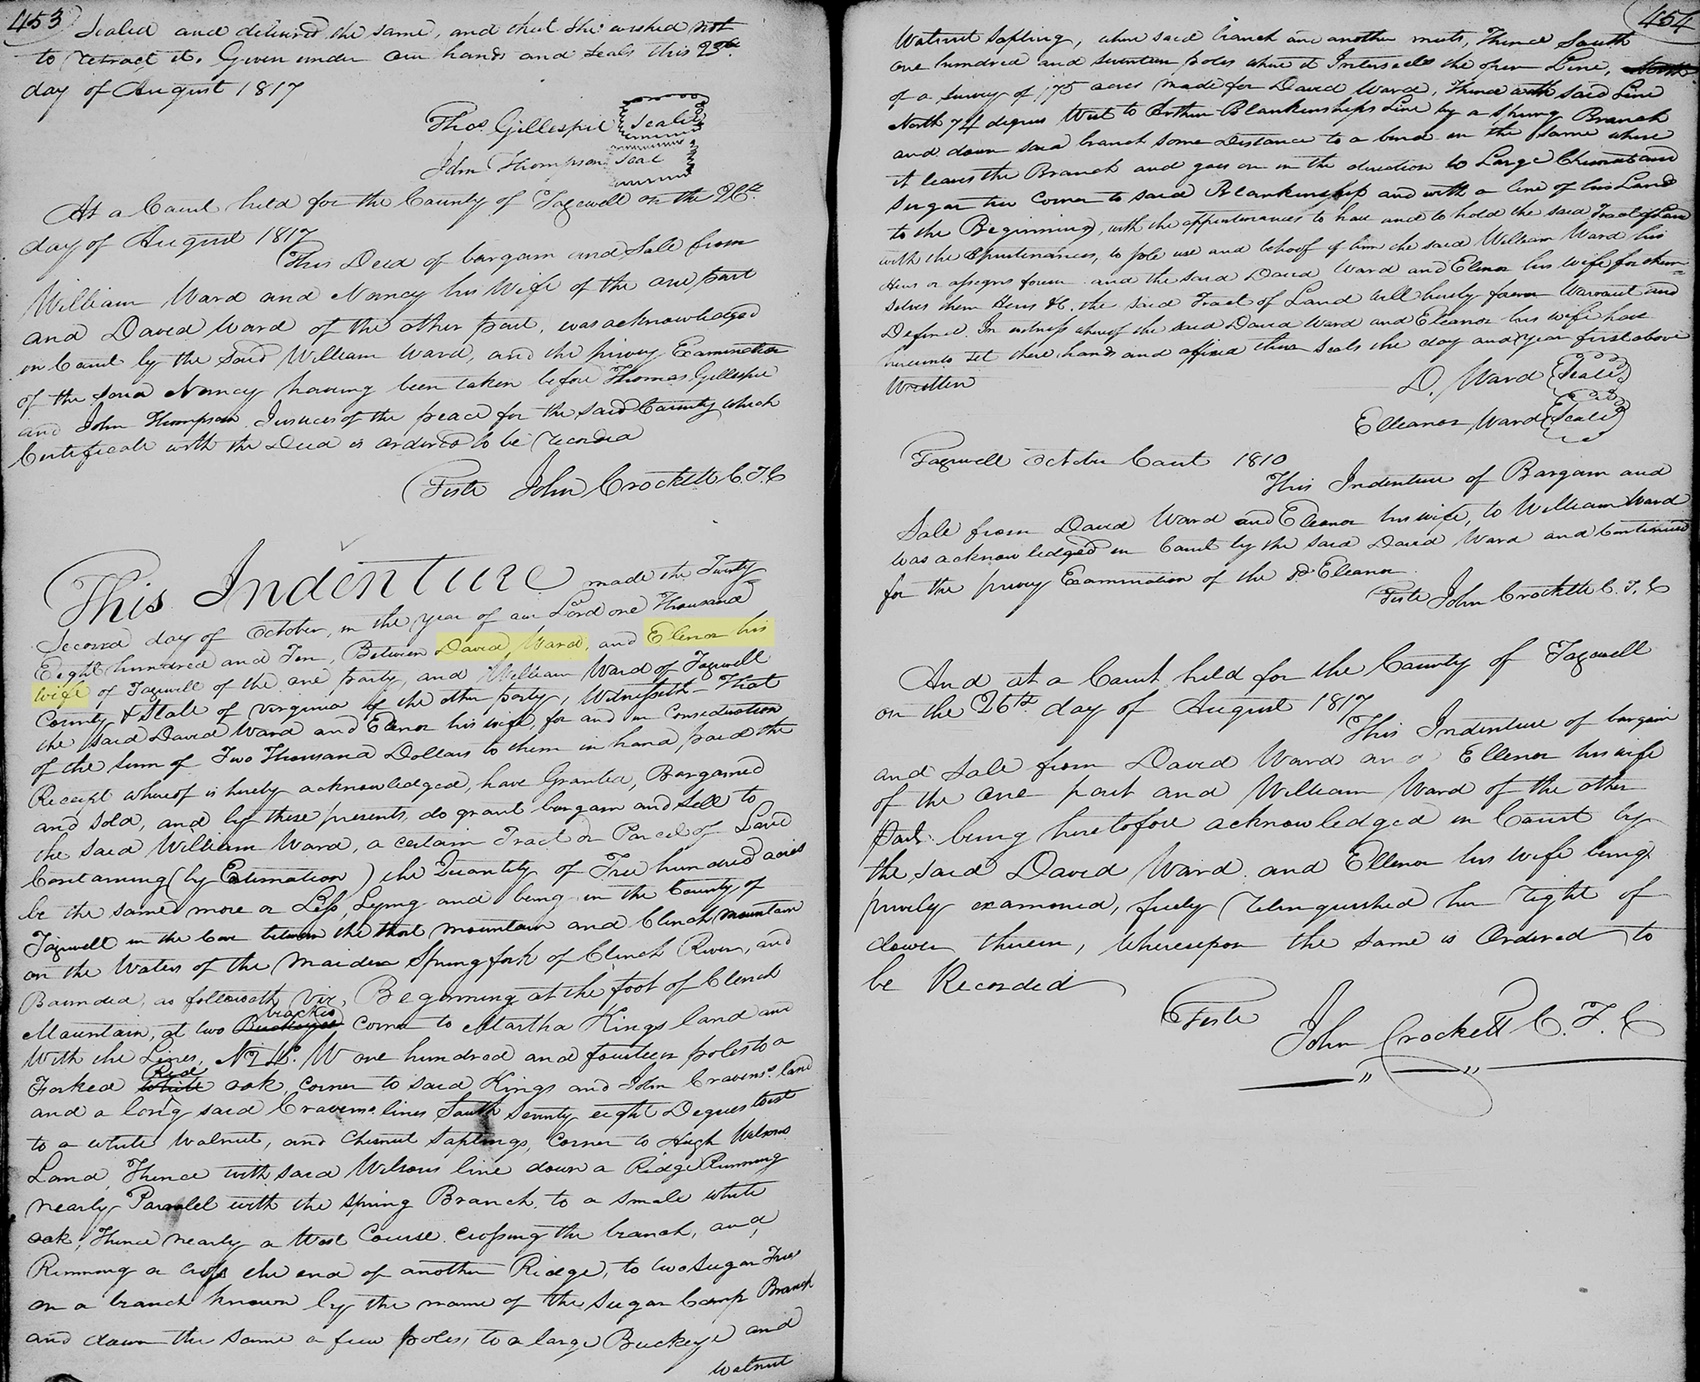 453
Sealed and delivered the same, and that she wished not
to retract it. Given under our hands and seals this 23rd
day of August 1817
Thos. Gillespie Seal
John Thompson Seal
At a Court held for the County of Tazewell on the 26th
day of August 1817
This Deed of bargain and Sale from
William Ward and Nancy his Wife of the one part
and David Ward of the other part, was acknowledged
in Court by the said William Ward, and the privey Examination
of the said Nancy having been taken before Thomas Gillespie
and John Thompson Justices of the peace for the said County which
Certificate with the Deed is ordered to be recorded
Teste John Crockett C.T.C
This Indenture made the Twenty
Second day of October, in the year of our Lord one Thousand
Eight hundred and Ten, Between David Ward, and Elenor his
wife of Tazewell of the one party, and William Ward of Tazewell
County & State of Virginia of the other party, Witnesseth That
the said David Ward and Elenor his wife, for and in Consideration
of the sum of Two Thousand Dollars to them in hand, paid the
Receipt whereof is hereby acknowledged, have Granted, Bargained
and sold, and by these presents, do grant bargain and sell to
the said William Ward, a certain Tract or Parcel of Land
Containing (by Estimation) the Quantity of Five hundred acres
be the same more or Less, Lying and being in the County of
Tazewell in the Cove between the short mountain and Clinch mountain
on the Waters of the Maiden Spring fork of Clinch River, and
Bounded, as followeth, viz, Beginning at the foot of Clinch
Mountain, at two Buckeyes corner to Martha Kings land and
With the Lines, W one hundred and fourteen poles to a
Forked white Red oak, corner to said Kings and John Cravens land
and a long said Cravens lines South Seventy eight Degrees West
to a white Walnut, and Chesnut Saplings, corner to Hugh Wilsons
Land, Thence with said Wilsons line down a Ridge Running
nearly Paralel with the spring Branch, to a small white
oak, Thence nearly a West Course crossing the branch, and,
Running a cross the end of another Ridge, to two Sugar Trees
on a branch known by the name of the Sugar Camp Branch
and down the same a few poles, to a large Buckeye and
walnut
454
Walnut Sapling, where said branch and another meets, Thence South
one hundred and seventeen poles where it Intersects the open Line,
of a Survey of 175 acres made for David Ward, Thence with said Line
North 74 degrees West to Arthur Blankinships Line by a Spring Branch
and down said branch some Distance to a bend in the same where
it leaves the Branch and goes on in the direction to Large Chesnut and
Sugar tree corner to said Blankinship and with a line of his Land
to the Beginning, with the appurtenances to have and to hold the said Tract of Land
with the Apurtenances, to sole use and behoof of him the said William Ward his
Heirs or assigns forever and the said David Ward and Elenor his wife for them=
selves them Heirs &c. the said Tract of Land will hereby forever Warrant and
Defend. In witness whereof the said David Ward and Eleanor his wife have
hereunto set there hands and affixed their Seals the day and year first above
Written
D. Ward Seal
Elleanor Ward Seal
Tazewell October Court 1810
This Indenture of Bargain and
Sale from David Ward and Eleanor his wife, to William Ward
was acknowledged in Court by the said David Ward and Continued
for the privey Examination of the sd Eleanor
Teste John Crockett C.T.C
And at a Court held for the County of Tazewell
on the 26th day of August 1817
This Indenture of bargain
and Sale from David Ward and Ellenor his wife
of the one part and William Ward of the other
part being heretofore acknowledged in Court by
the said David Ward and Ellenor his wife being
privily examined, freely relinquished her right of
dower therein, Whereupon the same is Ordered to
be Recorded
Teste
John Crockett C.T.C